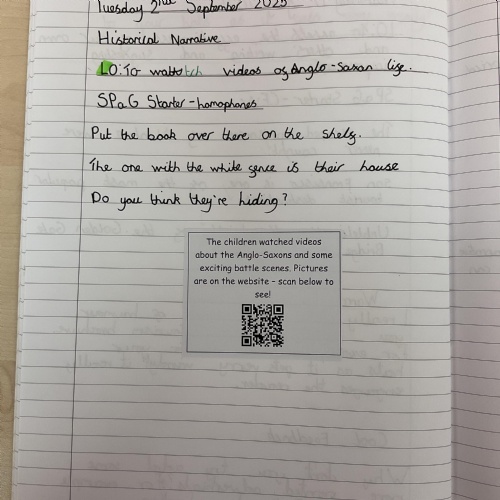 Tuesday 2nd September 2025
Historical Narrative
LO: To watch videos of Anglo-Saxon life.
SPaG Starter - homophones
Put the book over there on the shelf.
The one with the white fence is their house
Do you think they're hiding?
The children watched videos
about the Anglo-Saxons and some
exciting battle scenes. Pictures
are on the website – scan below to
see!